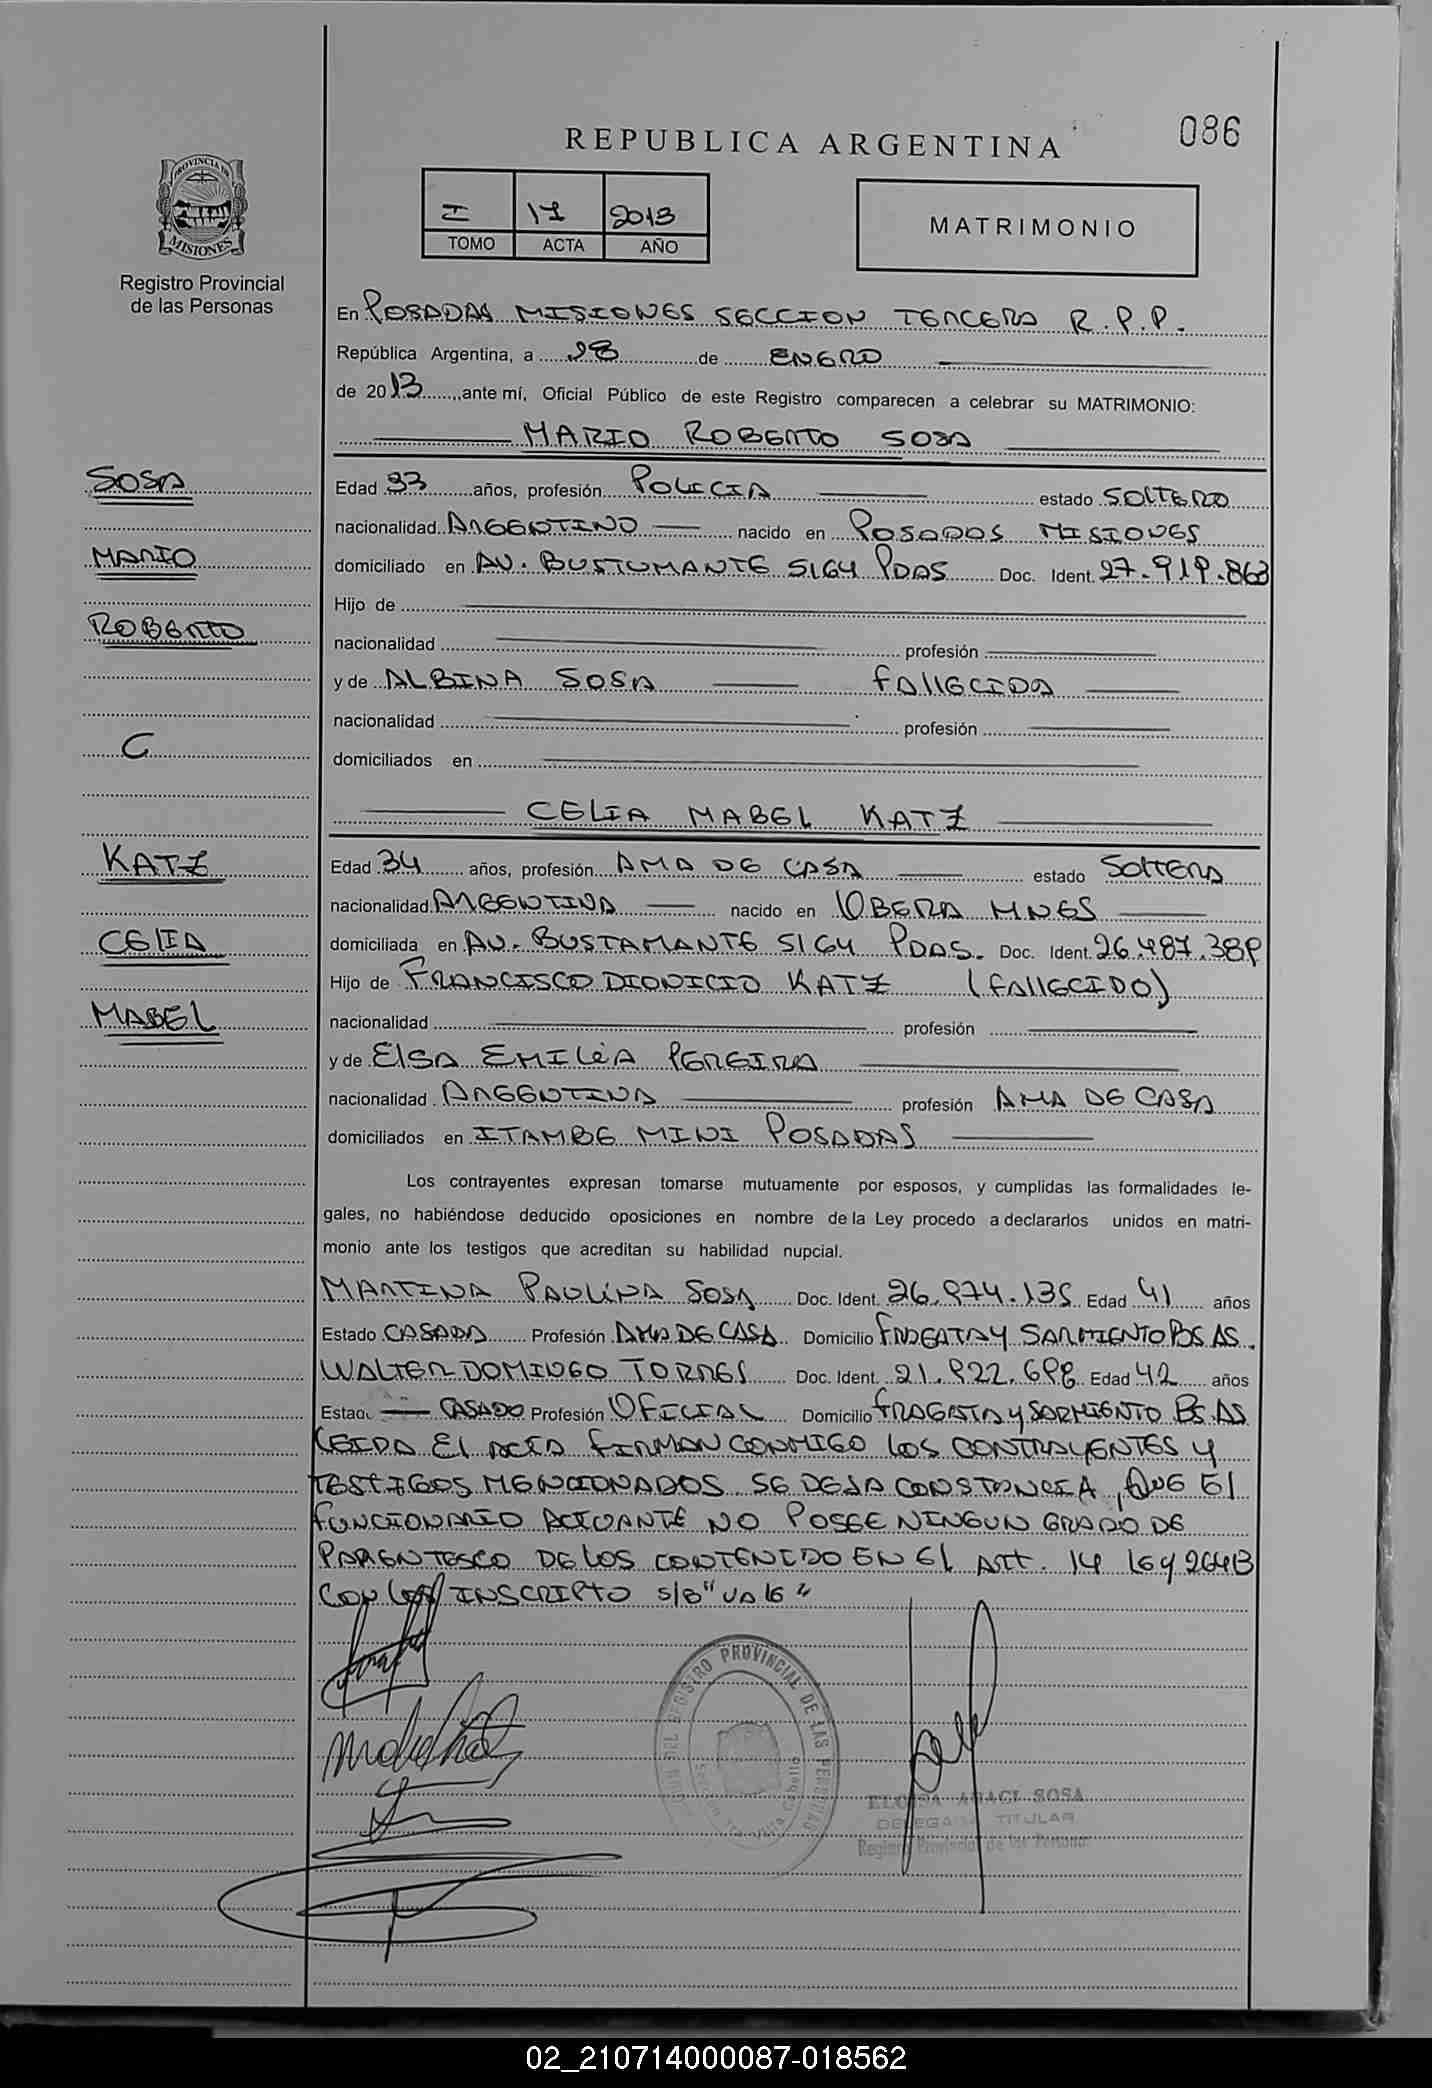 086
REPUBLICA ARGENTINA
I 17 2013
TOMO ACTA AÑO
MATRIMONIO
PROVINCIA DE
MISIONES
Registro Provincial
de las Personas
En POSADAS MISIONES SECCION TERCERA R.P.P.
República Argentina, a 28 de ENERO
de 2013, ante mí, Oficial Público de este Registro comparecen a celebrar su MATRIMONIO:
MARIO ROBERTO SOSA
SOSA
MARIO
ROBERTO
C
KATZ
CELIA
MABEL
Edad 33 años, profesión POLICIA estado SOLTERO
nacionalidad ARGENTINO nacido en POSADAS MISIONES
domiciliado en AV. BUSTUMANTE 5164 PDAS Doc. Ident. 27.919.863
Hijo de
nacionalidad profesión
y de ALBINA SOSA FALLECIDA
nacionalidad profesión
domiciliados en
CELIA MABEL KATZ
Edad 34 años, profesión AMA DE CASA estado SOLTERA
nacionalidad ARGENTINA nacido en OBERA MNES
domiciliada en AV. BUSTAMANTE 5164 PDAS. Doc. Ident. 26.487.389
Hijo de FRANCISCO DIONICIO KATZ (FALLECIDO)
nacionalidad profesión
y de ELSA EMILIA PEREIRA
nacionalidad ARGENTINA profesión AMA DE CASA
domiciliados en ITAMBE MINI POSADAS
Los contrayentes expresan tomarse mutuamente por esposos, y cumplidas las formalidades le-
gales, no habiéndose deducido oposiciones en nombre de la Ley procedo a declararlos unidos en matri-
monio ante los testigos que acreditan su habilidad nupcial.
MARTINA PAULINA SOSA Doc. Ident. 26.974.135 Edad 41 años
Estado CASADA Profesión AMA DE CASA Domicilio FRAGATA Y SARMIENTO BS AS.
WALTER DOMINGO TORRES Doc. Ident. 21.922.698 Edad 42 años
Estado CASADO Profesión OFICIAL Domicilio FRAGATA Y SARMIENTO BS.AS
LEIDA EL ACTA FIRMAN CONMIGO LOS CONTRAYENTES Y
TESTIGOS MENCIONADOS SE DEJA CONSTANCIA, QUE EL
FUNCIONARIO ACTUANTE NO POSEE NINGUN GRADO DE
PARENTESCO DE LOS CONTENIDO EN EL ART. 14 LEY 26413
CON LOS INSCRIPTO S/B "VALE"
REGISTRO PROVINCIAL DE LAS PERSONAS
ELOISA ARACI SOSA
DELEGADA TITULAR
Registro Provincial de las Personas
02_210714000087-018562